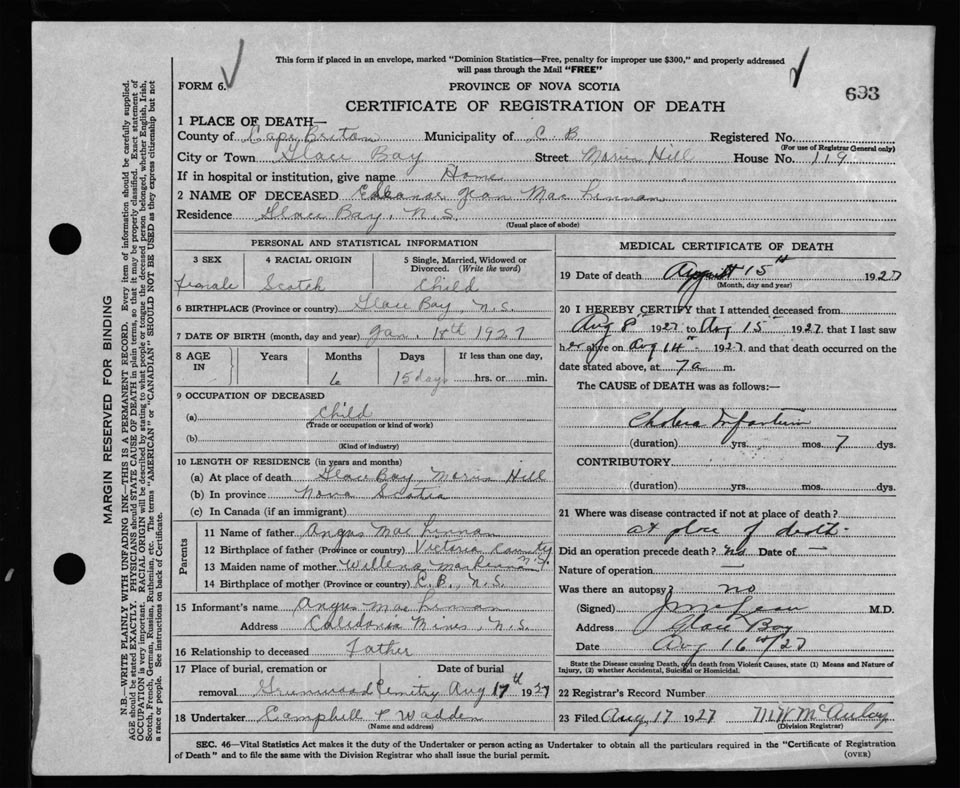 This form if placed in an envelope, marked "Dominion Statistics—Free, penalty for improper use $300," and properly addressed
will pass through the Mail "FREE"
FORM 6.
PROVINCE OF NOVA SCOTIA
693
CERTIFICATE OF REGISTRATION OF DEATH
1 PLACE OF DEATH—
County of Cape Breton Municipality of C B Registered No.
(For use of Registrar General only)
City or Town Glace Bay Street Hill House No. 119
If in hospital or institution, give name Home
2 NAME OF DECEASED Eleanor Jean Mac Linnan
Residence Glace Bay, N.S.
(Usual place of abode)
PERSONAL AND STATISTICAL INFORMATION
3 SEX 4 RACIAL ORIGIN 5 Single, Married, Widowed or
Divorced. (Write the word)
Female Scotch Child
6 BIRTHPLACE (Province or country) Glace Bay, N.S.
7 DATE OF BIRTH (month, day and year) Jan. 1927
8 AGE IN Years Months Days If less than one day,
6 15 days hrs. or min.
9 OCCUPATION OF DECEASED
(a) Child
(Trade or occupation or kind of work)
(b)
(Kind of industry)
10 LENGTH OF RESIDENCE (in years and months)
(a) At place of death Glace Bay, Hill
(b) In province Nova Scotia
(c) In Canada (if an immigrant)
Parents
11 Name of father Angus Mac Linnan
12 Birthplace of father (Province or country) Victoria County
13 Maiden name of mother Willena
14 Birthplace of mother (Province or country) C.B., N.S.
15 Informant's name Angus Mac Linnan
Address Caledonia Mines, N.S.
16 Relationship to deceased Father
17 Place of burial, cremation or Date of burial
removal Greenwood Cemetry Aug 17th 1927
18 Undertaker Campbell & Wadden
(Name and address)
MEDICAL CERTIFICATE OF DEATH
19 Date of death August 15th 1927
(Month, day and year)
20 I HEREBY CERTIFY that I attended deceased from
Aug 8th 1927 to Aug 15th 1927 that I last saw
her alive on Aug 14th 1927 and that death occurred on the
date stated above, at 7 a m.
The CAUSE of DEATH was as follows:—
Cholera Infantum
(duration) yrs. mos. 7 dys.
CONTRIBUTORY
(duration) yrs. mos. dys.
21 Where was disease contracted if not at place of death?
At place of death
Did an operation precede death? No Date of —
Nature of operation —
Was there an autopsy? no
(Signed) M.D.
Address Glace Bay
Date Aug 16th/27
State the Disease causing Death, or in death from Violent Causes, state (1) Means and Nature of
Injury, (2) whether Accidental, Suicidal or Homicidal.
22 Registrar's Record Number
23 Filed Aug 17 1927 McAulay
(Division Registrar)
SEC. 46—Vital Statistics Act makes it the duty of the Undertaker or person acting as Undertaker to obtain all the particulars required in the "Certificate of Registration
of Death" and to file the same with the Division Registrar who shall issue the burial permit. (OVER)
MARGIN RESERVED FOR BINDING
N.B.—WRITE PLAINLY WITH UNFADING INK—THIS IS A PERMANENT RECORD. Every item of information should be carefully supplied.
AGE should be stated EXACTLY. PHYSICIANS should STATE CAUSE OF DEATH in plain terms, so that it may be properly classified. Exact statement of
OCCUPATION is very important. RACIAL ORIGIN will be described by stating to what people or tongue the deceased person belonged, whether English, Irish,
Scotch, French, German, Russian, Ruthenian, etc. The terms "AMERICAN" or "CANADIAN" SHOULD NOT BE USED as they express citizenship but not
a race or people. See instructions on back of Certificate.